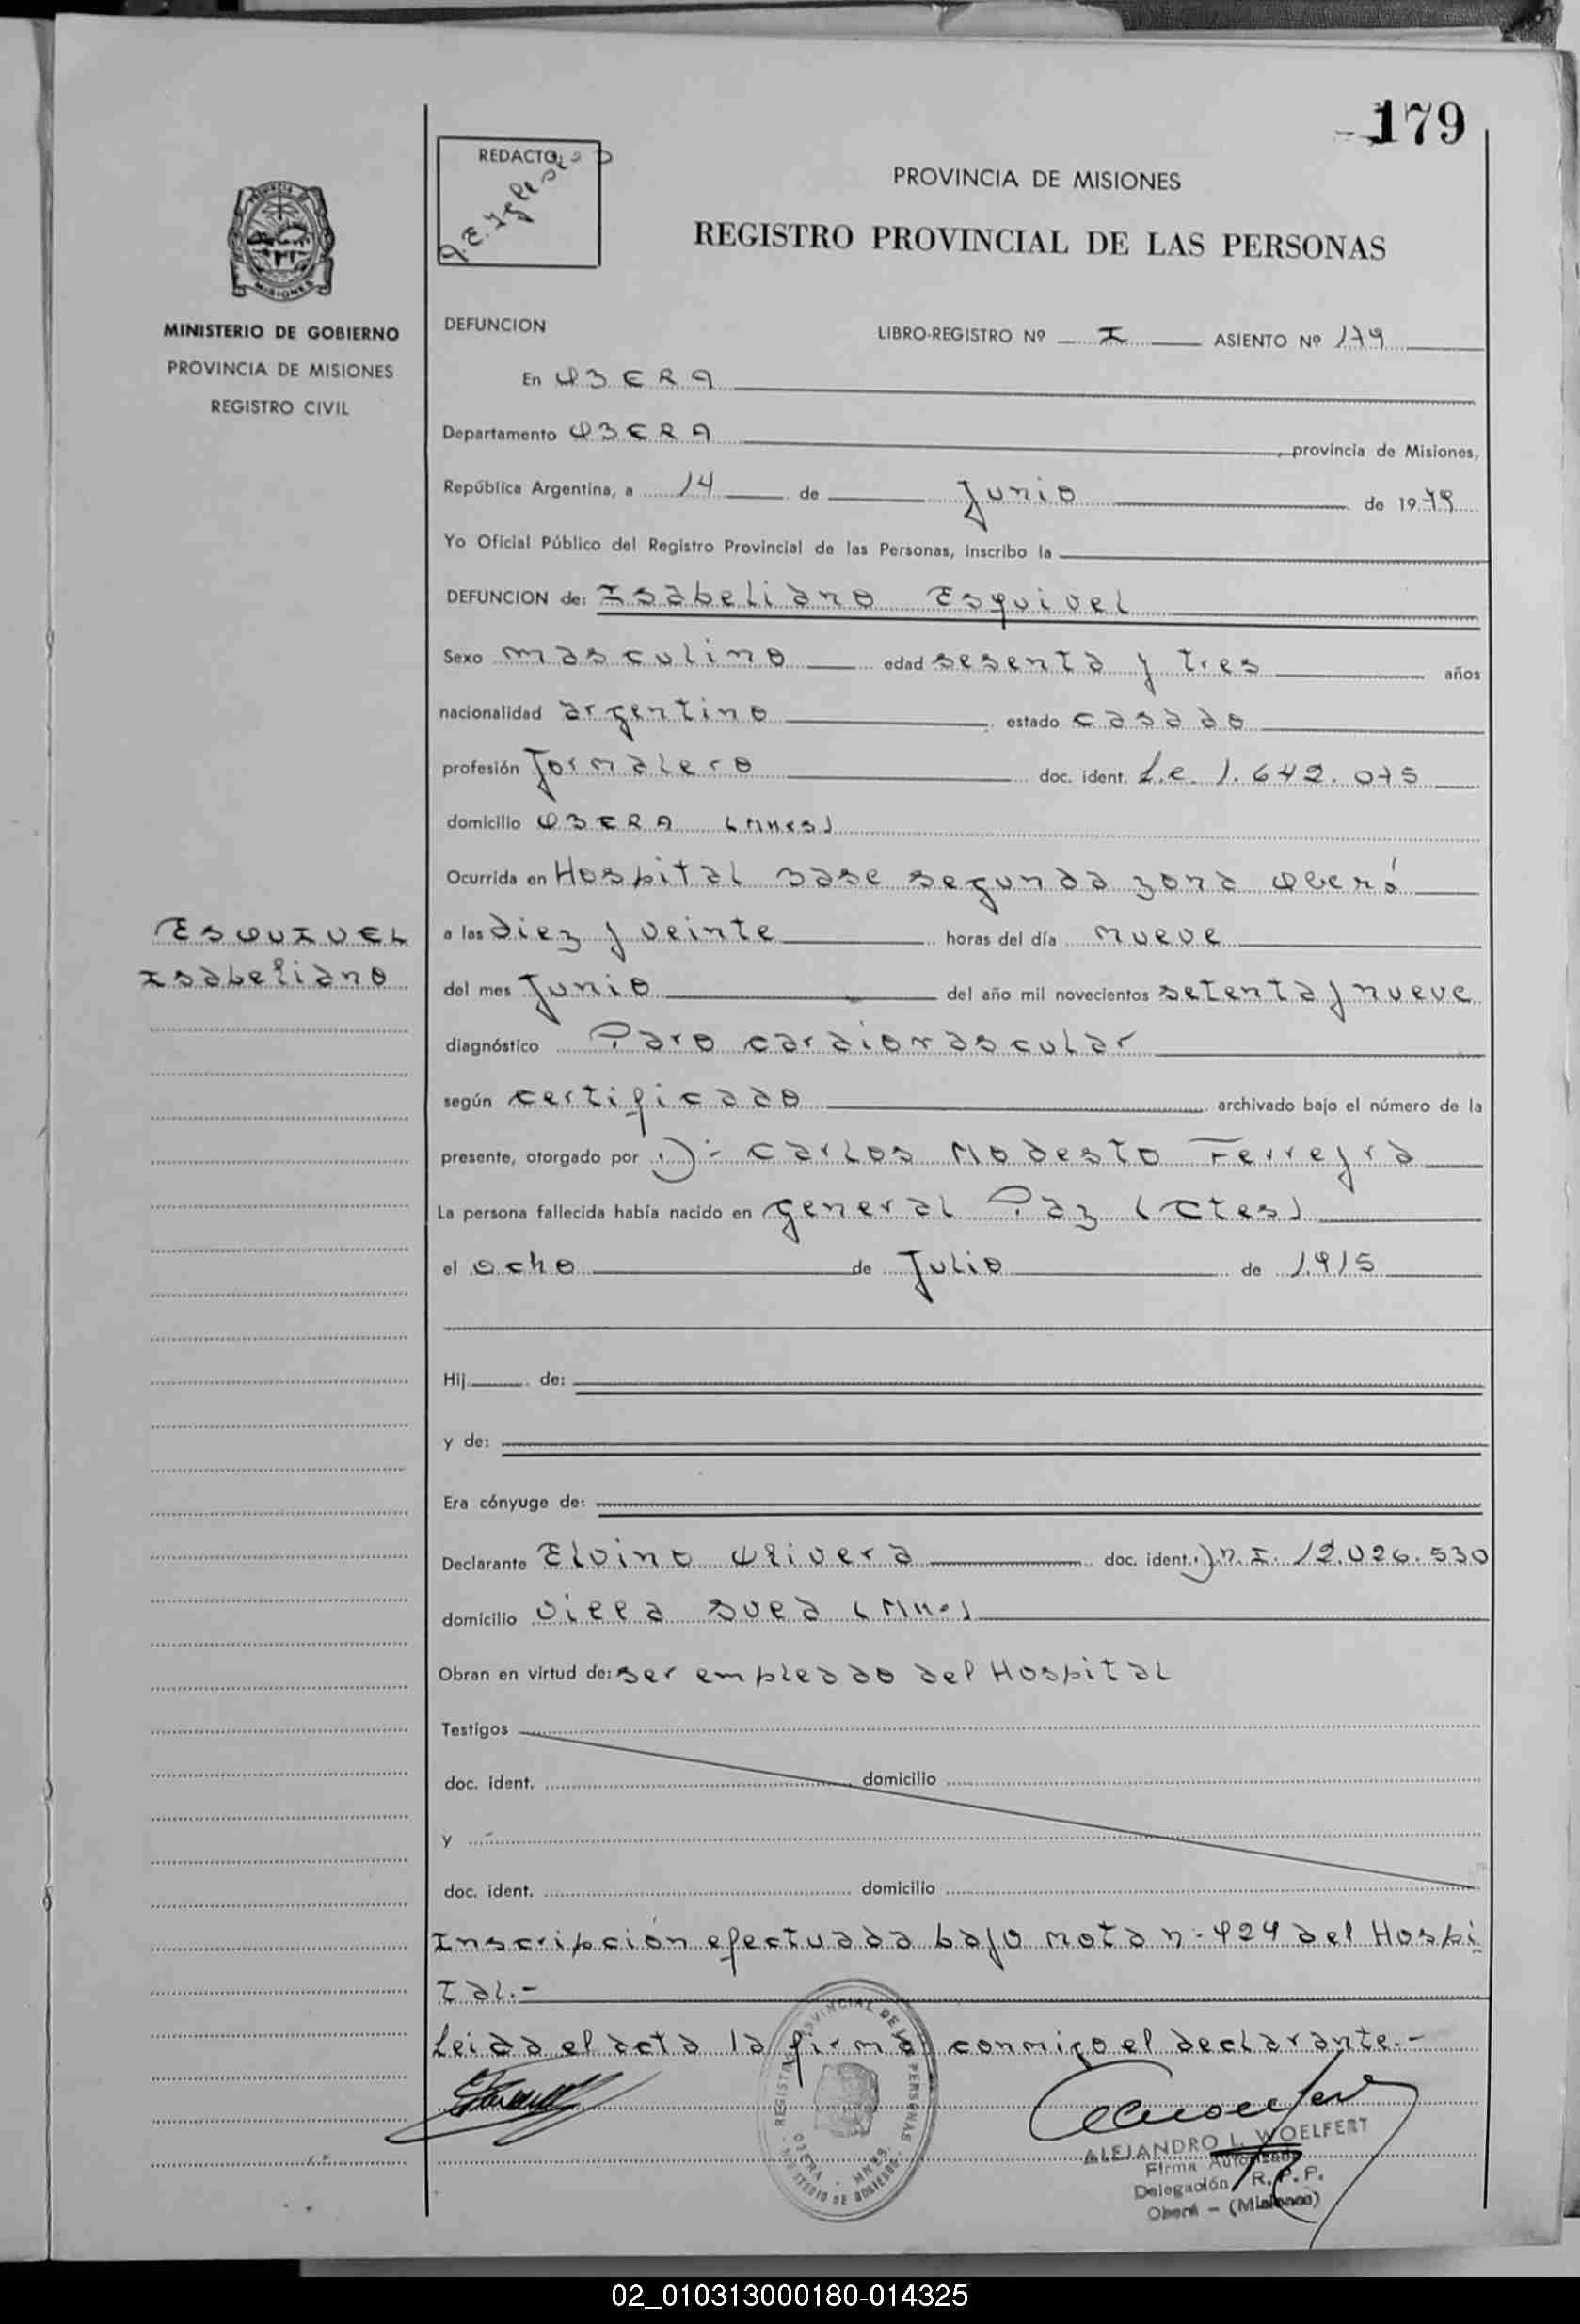 179
REDACTO:
A. E. Iglesias
PROVINCIA DE MISIONES
REGISTRO PROVINCIAL DE LAS PERSONAS
MISIONES
MINISTERIO DE GOBIERNO
PROVINCIA DE MISIONES
REGISTRO CIVIL
DEFUNCION LIBRO-REGISTRO Nº I ASIENTO Nº 179
En OBERA
Departamento OBERA, provincia de Misiones,
República Argentina, a 14 de Junio de 1979
Yo Oficial Público del Registro Provincial de las Personas, inscribo la
DEFUNCION de: Isabeliano Esquivel
Sexo masculino edad sesenta y tres años
nacionalidad argentino estado casado
profesión Jornalero doc. ident. L.e. 1.642.075
domicilio OBERA (Mnes)
Ocurrida en Hospital Base segunda zona Oberá
ESQUIVEL
Isabeliano
a las diez y veinte horas del día nueve
del mes Junio del año mil novecientos setenta y nueve
diagnóstico Paro cardiovascular
según certificado archivado bajo el número de la
presente, otorgado por D:- Carlos Modesto Ferreyra
La persona fallecida había nacido en general Paz (Ctes)
el ocho de Julio de 1915
Hij de:
y de:
Era cónyuge de:
Declarante Elvino Olivera doc. ident. D.N.I. 12.026.530
domicilio Villa Sved (Mn.)
Obran en virtud de: ser empleado del Hospital
Testigos
doc. ident. domicilio
y
doc. ident. domicilio
Inscripción efectuada bajo nota n: 424 del Hospi
tal.-
Leida el acta la firma conmigo el declarante.-
REGISTRO PROVINCIAL DE LAS PERSONAS
OBERA - MNES.
MINISTERIO DE GOBIERNO
ALEJANDRO L. WOELFERT
Firma Autorizada
Delegación R. P. P.
Oberá - (Misiones)
02_010313000180-014325